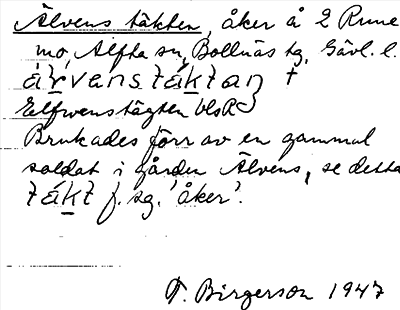 Älvens täkten, åker å 2 Rune
mo, Alfta sn, Bollnäs tg, Gävl. l.
Elfwenstägten
Brukades förr av en gammal
soldat i gården Älvens, se detta
täkt f. sg. 'åker'.
T. Birgerson 1947